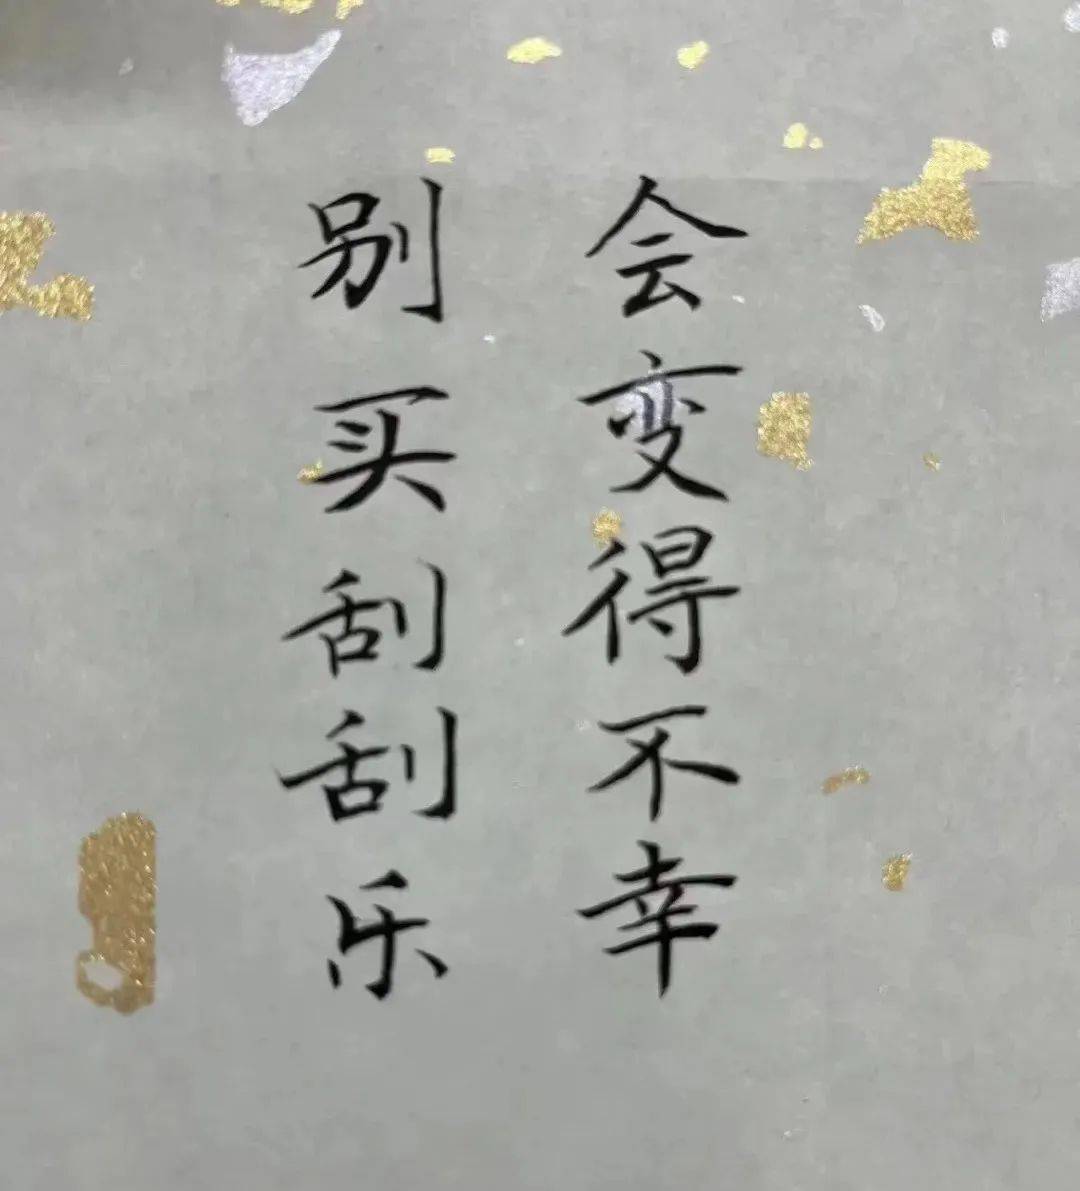 别买刮刮乐
会变得不幸